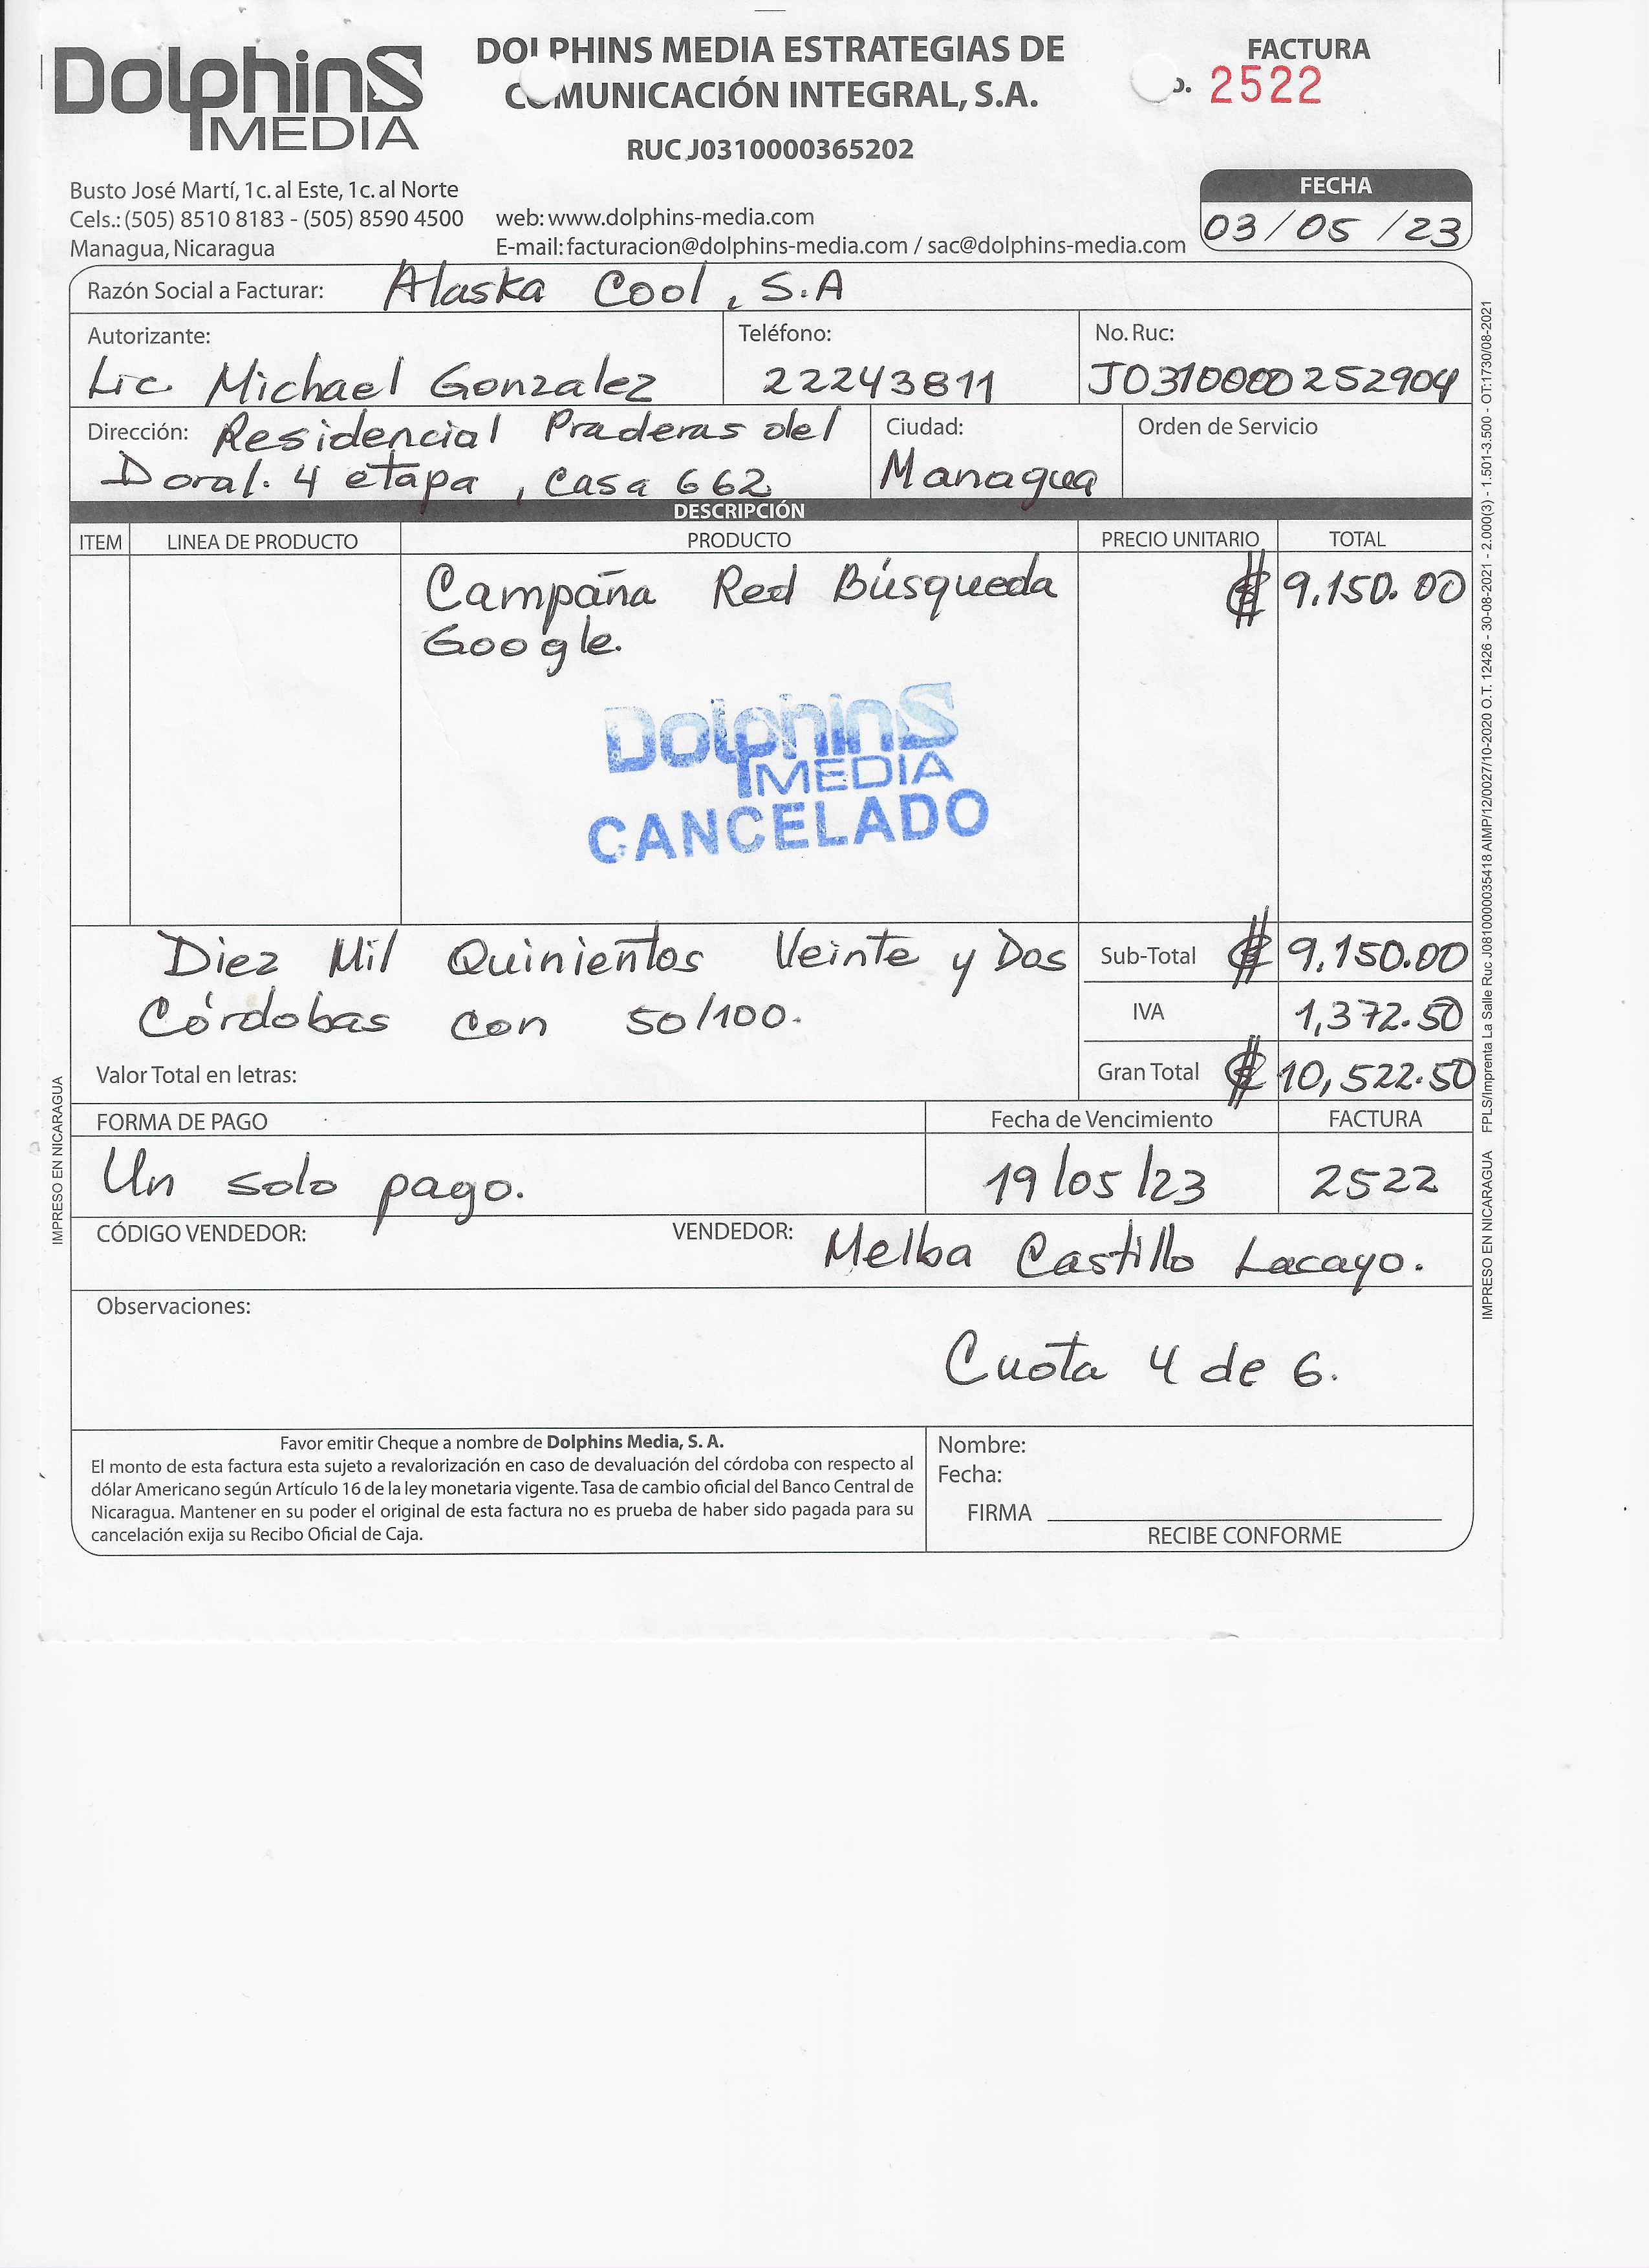 Dolphins
MEDIA
DOLPHINS MEDIA ESTRATEGIAS DE
COMUNICACIÓN INTEGRAL, S.A.
RUC J0310000365202
FACTURA
o. 2522
Busto José Martí, 1c. al Este, 1c. al Norte
Cels.: (505) 8510 8183 - (505) 8590 4500
Managua, Nicaragua
web: www.dolphins-media.com
E-mail: facturacion@dolphins-media.com / sac@dolphins-media.com
FECHA
03/05/23
Razón Social a Facturar: Alaska Cool, S.A
Autorizante:
Lic Michael Gonzalez
Teléfono:
22243811
No. Ruc:
J0310000252904
Dirección: Residencial Praderas del
Doral. 4 etapa, casa 662
Ciudad:
Managua
Orden de Servicio
DESCRIPCIÓN
ITEM LINEA DE PRODUCTO PRODUCTO PRECIO UNITARIO TOTAL
Campaña Red Búsqueda ₡ 9,150.00
Google.
Dolphins
MEDIA
CANCELADO
Diez Mil Quinientos Veinte y Dos
Córdobas con 50/100.
Valor Total en letras:
Sub-Total ₡ 9,150.00
IVA 1,372.50
Gran Total ₡ 10,522.50
FORMA DE PAGO Fecha de Vencimiento FACTURA
Un solo pago. 19/05/23 2522
CÓDIGO VENDEDOR: VENDEDOR: Melba Castillo Lacayo.
Observaciones:
Cuota 4 de 6.
Favor emitir Cheque a nombre de Dolphins Media, S. A.
El monto de esta factura esta sujeto a revalorización en caso de devaluación del córdoba con respecto al
dólar Americano según Artículo 16 de la ley monetaria vigente. Tasa de cambio oficial del Banco Central de
Nicaragua. Mantener en su poder el original de esta factura no es prueba de haber sido pagada para su
cancelación exija su Recibo Oficial de Caja.
Nombre:
Fecha:
FIRMA
RECIBE CONFORME
IMPRESO EN NICARAGUA
IMPRESO EN NICARAGUA FPLS/Imprenta La Salle Ruc J0810000035418 AIMP/12/0027/10-2020 O.T. 12426 - 30-08-2021 - 2.000(3) - 1.501-3.500 - OT:1730/08-2021